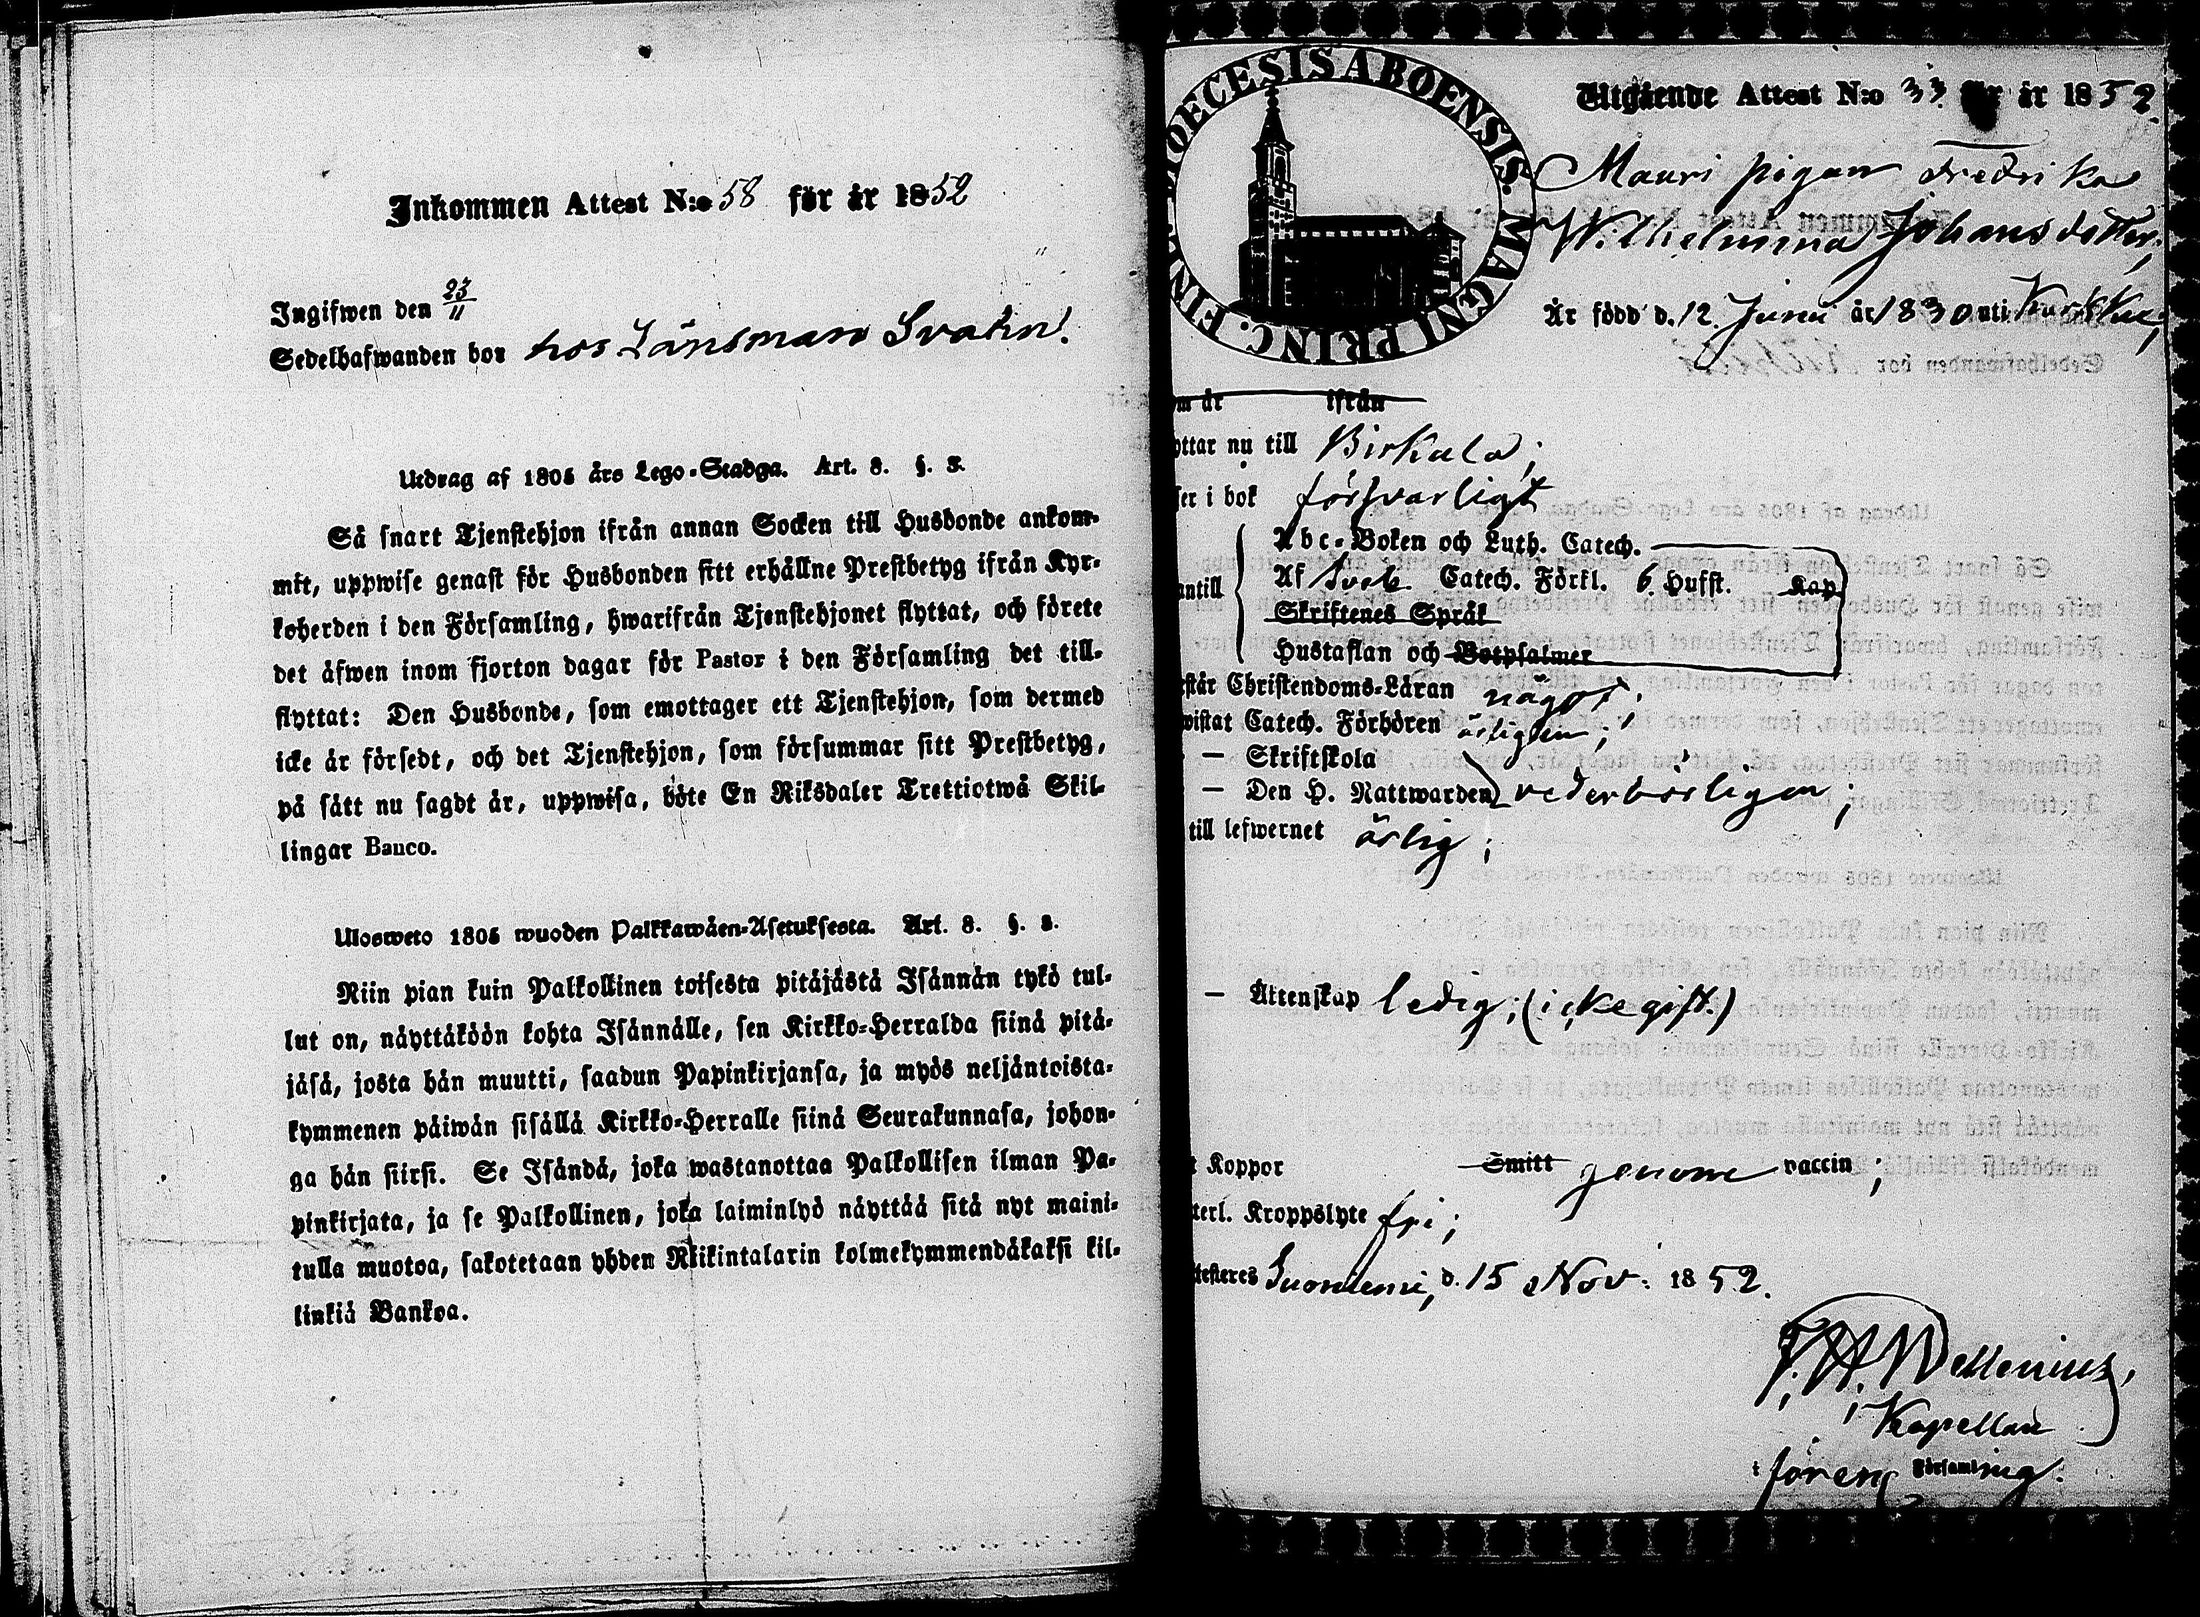 Inkommen Attest N:o 58 för år 1852
Ingifwen den 23/11
Sedelhafwanden bor hos Länsman Svahn.
Utdrag af 1805 års Lego-Stadga. Art. 8. §. 3.
Så snart Tjenstehjon ifrån annan Socken till Husbonde ankom-
mit, uppwise genast för Husbonden sitt erhållne Prestbetyg ifrån Kyr-
koherden i den Församling, hwarifrån Tjenstehjonet flyttat, och förete
det äfwen inom fjorton dagar för Pastor i den Församling det till-
flyttat: Den Husbonde, som emottager ett Tjenstehjon, som dermed
icke är försedt, och det Tjenstehjon, som försummar sitt Prestbetyg,
på sätt nu sagdt är, uppwisa, böte En Riksdaler Trettiotwå Skil-
lingar Banco.
Ulosweto 1805 wuoden Palkkawäen-Asetuksesta. Art. 8. §. 3.
Niin pian kuin Palkollinen toisesta pitäjästä Isännän tykö tul-
lut on, näyttäköön kohta Isännälle, sen Kirkko-Herralda siinä pitä-
jäsä, josta hän muutti, saadun Papinkirjansa, ja myös neljäntoista-
kymmenen päiwän sisällä Kirkko-Herralle siinä Seurakunnasa, johon-
ga hän siirsi. Se Isändä, joka wastanottaa Palkollisen ilman Pa-
pinkirjata, ja se Palkollinen, joka laiminlyö näyttää sitä nyt maini-
tulla muotoa, sakotetaan yhden Riikintalarin kolmekymmendäkaksi kil-
linkiä Bankoa.
DIOECESIS ABOENSIS. MAGNI PRINC. FINL.
Utgående Attest N:o 33 för år 1852.
Mauri pigan Fredrika
Wilhelmina Johansdotter,
Är född d. 12 Junii år 1830 uti Karkku;
om år ifrån
yttar nu till Birkala;
ser i bok försvarligt
Abc-Boken och Luth. Catech.
antill Af Sveb. Catech. Förkl. 6. Hufst. Kap
Skriftenes Språk
Hustaflan och Botpsalmer
står Christendoms-Läran något;
wistat Catech. Förhören årligen;
— Skriftskola
— Den H. Nattwarden vederbörligen;
till lefwernet ärlig;
— Äktenskap ledig; (icke gift.)
t Koppor Smitt genom vaccin;
terl. Kroppslyte fri;
testeres Suoniemi, d. 15 Nov. 1852.
F. A. Wellenius,
Kapellan
i fören. Församling.